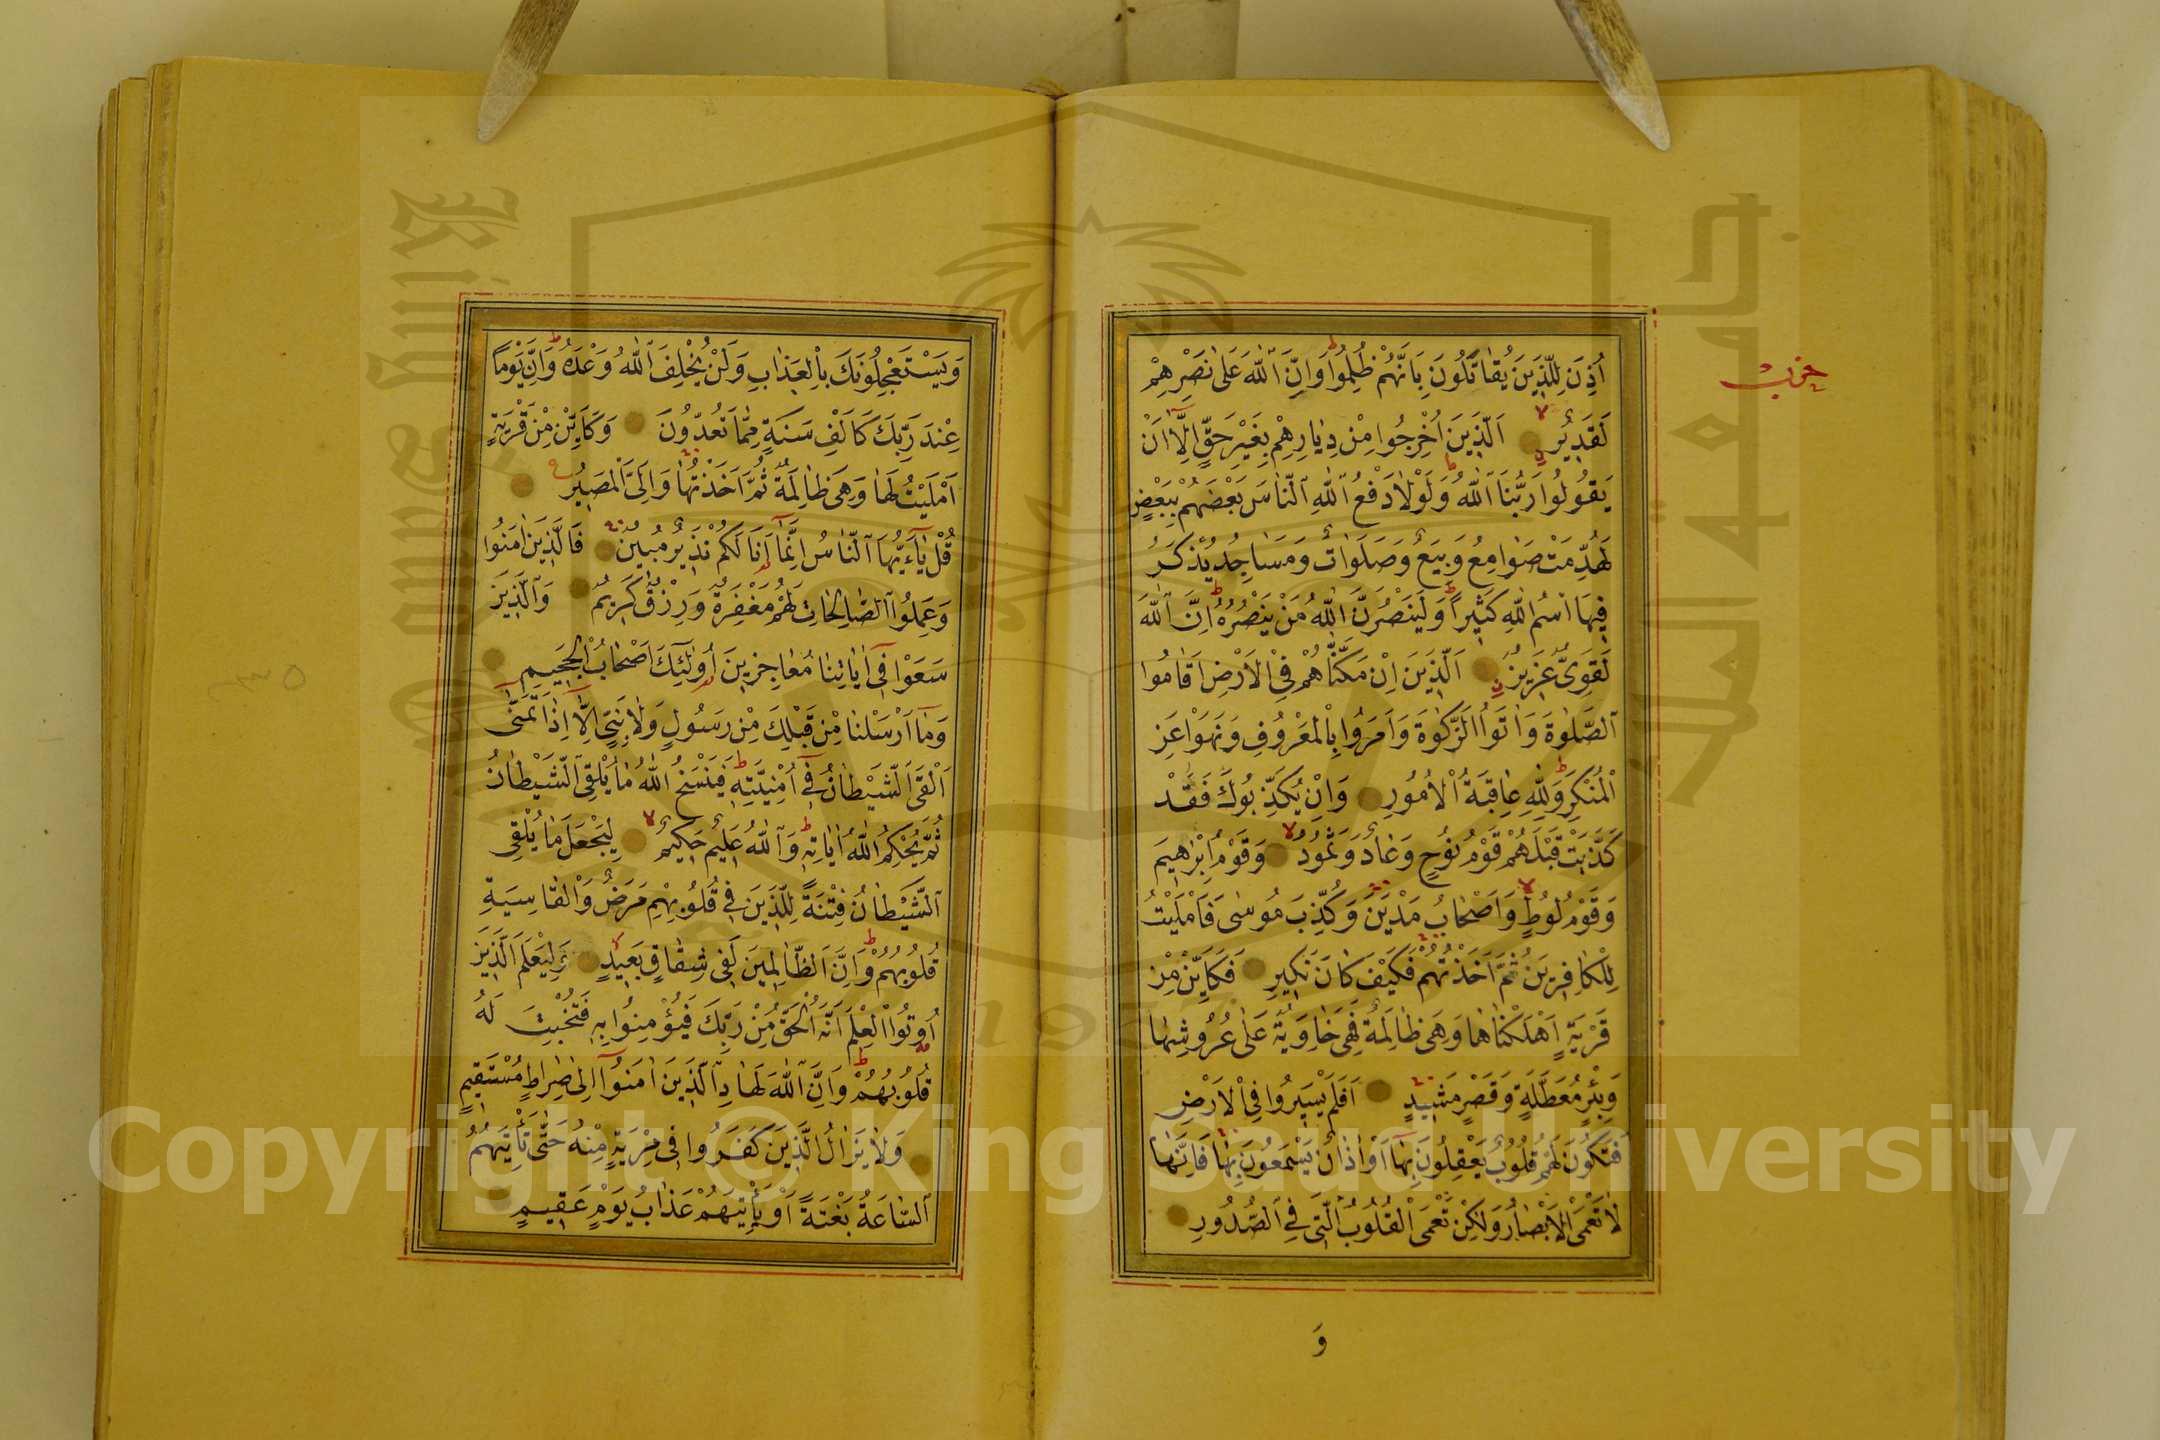 اُذِنَ لِلَّذِينَ يُقَاتَلُونَ بِاَنَّهُمْ ظُلِمُوا وَاِنَّ اللّٰهَ عَلٰى نَصْرِهِمْ
حزب
لَقَدِيرٌ اَلَّذِينَ اُخْرِجُوا مِنْ دِيَارِهِمْ بِغَيْرِ حَقٍّ اِلَّا اَنْ
يَقُولُوا رَبُّنَا اللّٰهُ وَلَوْلَا دَفْعُ اللّٰهِ النَّاسَ بَعْضَهُمْ بِبَعْضٍ
لَهُدِّمَتْ صَوَامِعُ وَبِيَعٌ وَصَلَوَاتٌ وَمَسَاجِدُ يُذْكَرُ
فِيهَا اسْمُ اللّٰهِ كَثِيرًا وَلَيَنْصُرَنَّ اللّٰهُ مَنْ يَنْصُرُهُ اِنَّ اللّٰهَ
لَقَوِىٌّ عَزِيزٌ اَلَّذِينَ اِنْ مَكَّنَّاهُمْ فِى الْاَرْضِ اَقَامُوا
الصَّلٰوةَ وَاٰتَوُا الزَّكٰوةَ وَاَمَرُوا بِالْمَعْرُوفِ وَنَهَوْا عَنِ
الْمُنْكَرِ وَلِلّٰهِ عَاقِبَةُ الْاُمُورِ وَاِنْ يُكَذِّبُوكَ فَقَدْ
كَذَّبَتْ قَبْلَهُمْ قَوْمُ نُوحٍ وَعَادٌ وَثَمُودُ وَقَوْمُ اِبْرٰهِيمَ
وَقَوْمُ لُوطٍ وَاَصْحَابُ مَدْيَنَ وَكُذِّبَ مُوسٰى فَاَمْلَيْتُ
لِلْكَافِرِينَ ثُمَّ اَخَذْتُهُمْ فَكَيْفَ كَانَ نَكِيرِ فَكَاَيِّنْ مِنْ
قَرْيَةٍ اَهْلَكْنَاهَا وَهِىَ ظَالِمَةٌ فَهِىَ خَاوِيَةٌ عَلٰى عُرُوشِهَا
وَبِئْرٍ مُعَطَّلَةٍ وَقَصْرٍ مَشِيدٍ اَفَلَمْ يَسِيرُوا فِى الْاَرْضِ
فَتَكُونَ لَهُمْ قُلُوبٌ يَعْقِلُونَ بِهَا اَوْ اٰذَانٌ يَسْمَعُونَ بِهَا فَاِنَّهَا
لَا تَعْمَى الْاَبْصَارُ وَلٰكِنْ تَعْمَى الْقُلُوبُ الَّتِى فِى الصُّدُورِ
وَ
وَيَسْتَعْجِلُونَكَ بِالْعَذَابِ وَلَنْ يُخْلِفَ اللّٰهُ وَعْدَهُ وَاِنَّ يَوْمًا
عِنْدَ رَبِّكَ كَاَلْفِ سَنَةٍ مِمَّا تَعُدُّونَ وَكَاَيِّنْ مِنْ قَرْيَةٍ
اَمْلَيْتُ لَهَا وَهِىَ ظَالِمَةٌ ثُمَّ اَخَذْتُهَا وَاِلَىَّ الْمَصِيرُ
قُلْ يَا اَيُّهَا النَّاسُ اِنَّمَا اَنَا لَكُمْ نَذِيرٌ مُبِينٌ فَالَّذِينَ اٰمَنُوا
وَعَمِلُوا الصَّالِحَاتِ لَهُمْ مَغْفِرَةٌ وَرِزْقٌ كَرِيمٌ وَالَّذِينَ
سَعَوْا فِى اٰيَاتِنَا مُعَاجِزِينَ اُولٰئِكَ اَصْحَابُ الْجَحِيمِ
وَمَا اَرْسَلْنَا مِنْ قَبْلِكَ مِنْ رَسُولٍ وَلَا نَبِىٍّ اِلَّا اِذَا تَمَنّٰى
اَلْقَى الشَّيْطَانُ فِى اُمْنِيَّتِهِ فَيَنْسَخُ اللّٰهُ مَا يُلْقِى الشَّيْطَانُ
ثُمَّ يُحْكِمُ اللّٰهُ اٰيَاتِهِ وَاللّٰهُ عَلِيمٌ حَكِيمٌ لِيَجْعَلَ مَا يُلْقِى
الشَّيْطَانُ فِتْنَةً لِلَّذِينَ فِى قُلُوبِهِمْ مَرَضٌ وَالْقَاسِيَةِ
قُلُوبُهُمْ وَاِنَّ الظَّالِمِينَ لَفِى شِقَاقٍ بَعِيدٍ وَلِيَعْلَمَ الَّذِينَ
اُوتُوا الْعِلْمَ اَنَّهُ الْحَقُّ مِنْ رَبِّكَ فَيُؤْمِنُوا بِهِ فَتُخْبِتَ لَهُ
قُلُوبُهُمْ وَاِنَّ اللّٰهَ لَهَادِ الَّذِينَ اٰمَنُوا اِلٰى صِرَاطٍ مُسْتَقِيمٍ
وَلَا يَزَالُ الَّذِينَ كَفَرُوا فِى مِرْيَةٍ مِنْهُ حَتّٰى تَأْتِيَهُمُ
السَّاعَةُ بَغْتَةً اَوْ يَأْتِيَهُمْ عَذَابُ يَوْمٍ عَقِيمٍ
King Saud University
جامعة الملك
1957
Copyright © King Saud University